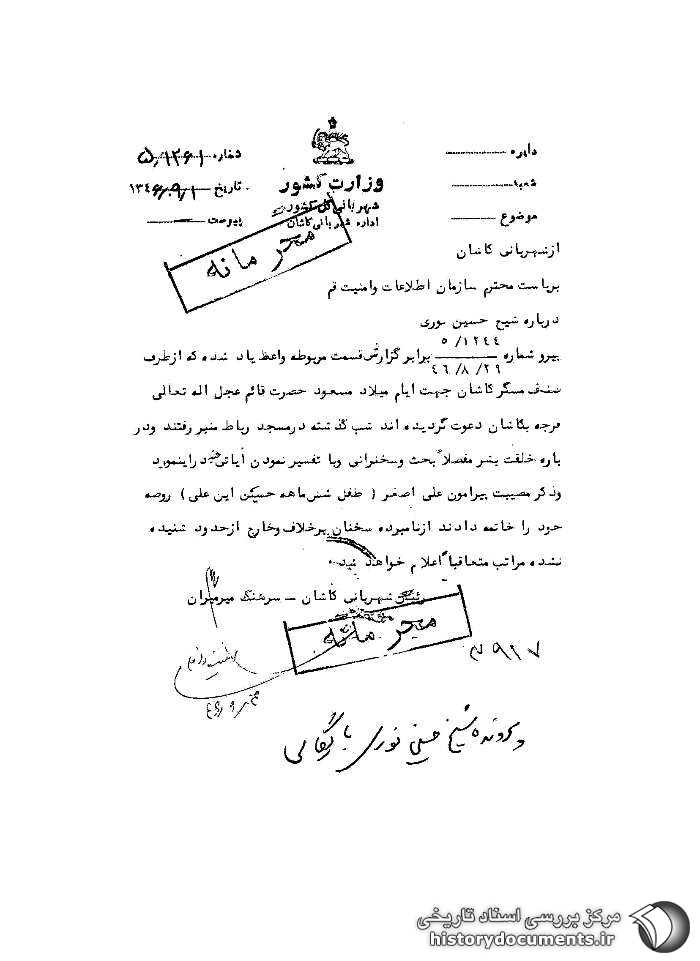 دایره
شعبه
موضوع
وزارت کشور
شهربانی کل کشور
اداره شهربانی کاشان
شماره ۵/۱۲۶۱
تاریخ ۱۳۴۶/۹/۱
پیوست
محرمانه
از شهربانی کاشان
بریاست محترم سازمان اطلاعات وامنیت قم
درباره شیخ حسین نوری
پیرو شماره ۵/۱۲۴۴ ۴۶/۸/۲۹ برابر گزارش قسمت مربوطه واعظ یاد شده که ازطرف
صنف مسگر کاشان جهت ایام میلاد مسعود حضرت قائم عجل اله تعالی
فرجه بکاشان دعوت گردیده اند شب گذشته درمسجد رباط منبر رفتند ودر
باره خلقت بشر مفصلاً بحث وسخنرانی وبا تفسیر نمودن آیاتی چند دراینمورد
وذکر مصیبت پیرامون علی اصغر ( طفل شش ماهه حسین ابن علی ) روضه
خود را خاتمه دادند ازنامبرده سخنان برخلاف وخارج ازحدود شنیده
نشده مراتب متعاقباً اعلام خواهد شد.
رئیس شهربانی کاشان – سرهنگ میرمیران
محرمانه
۲۹۱۷
پرونده شیخ حسین نوری بایگانی
مرکز بررسی اسناد تاریخی
historydocuments.ir